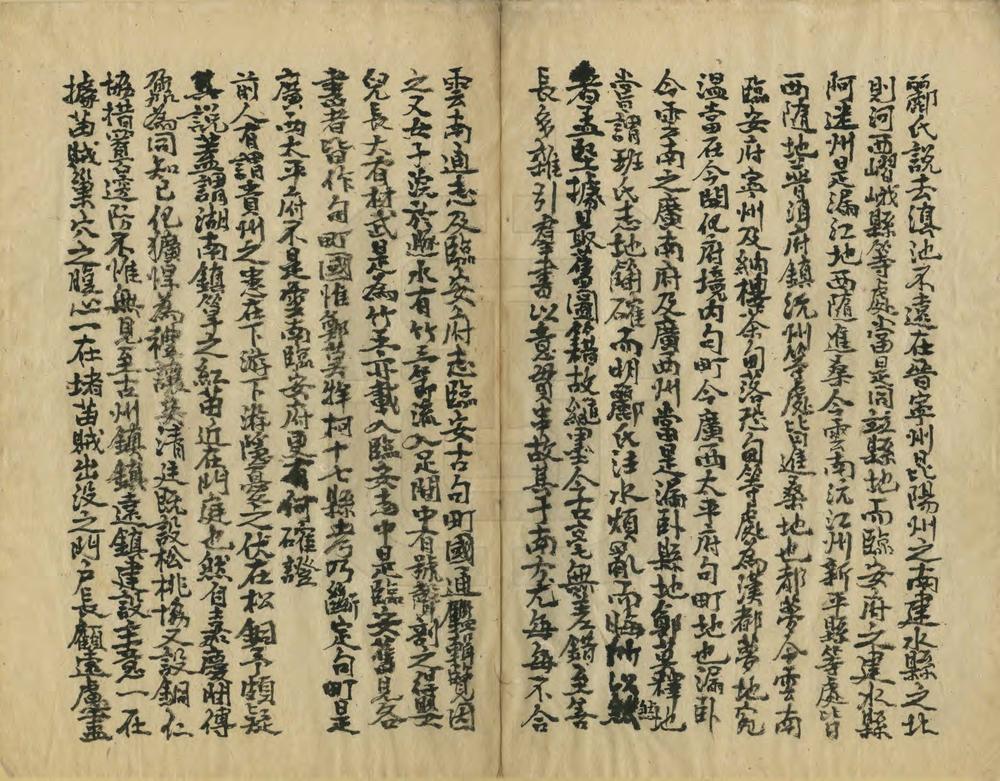 酈氏說去滇池不遠在晉寧州昆陽州之南建水縣之北
則河西嶍峨縣等處當是同竝縣地而臨安府之建水縣
阿迷州是漏江地西隨進桑今雲南沅江州新平縣等處皆
西隨地普洱府鎮沅州等處皆進桑地也都夢今雲南
臨安府寧州及納樓茶甸落恐甸等處為漢都夢地宛
溫當在今開化府境內句町今廣西太平府句町地也漏卧
今雲南之廣南府及廣西州當是漏卧縣地鄭莫釋地
嘗謂班氏志地簡確而明酈氏注水煩亂而晦所以然
者孟堅據是聚舊圖籍故繩墨今古毫無差錯至善
長多雜引群書以意貫串故其于南方尤每每不合
雲南通志及臨安府志臨安古句町國通鑑輯覽因
之又女子浣於遯水有竹三節流入足間中有號聲剖之得嬰
兒長大有材武是為竹王亦載入臨安志中是臨安舊見各
書者皆作句町國惟鄭莫牂柯十七縣考乃斷定句町是
廣西太平府不是雲南臨安府更有何確證
前人有謂貴州之患在下游下游隱憂之伏在松銅予頗疑
其說蓋謂湖南鎮筸之紅苗近在門庭也然自嘉慶間傅
鼐為同知已化獷悍為禮讓矣清廷既設松桃協又設銅仁
協措置邊防不惟無見至古州鎮鎮遠鎮建設主意一在
據苗賊巢穴之腹心一在堵苗賊出沒之門戶長顧遠慮盡